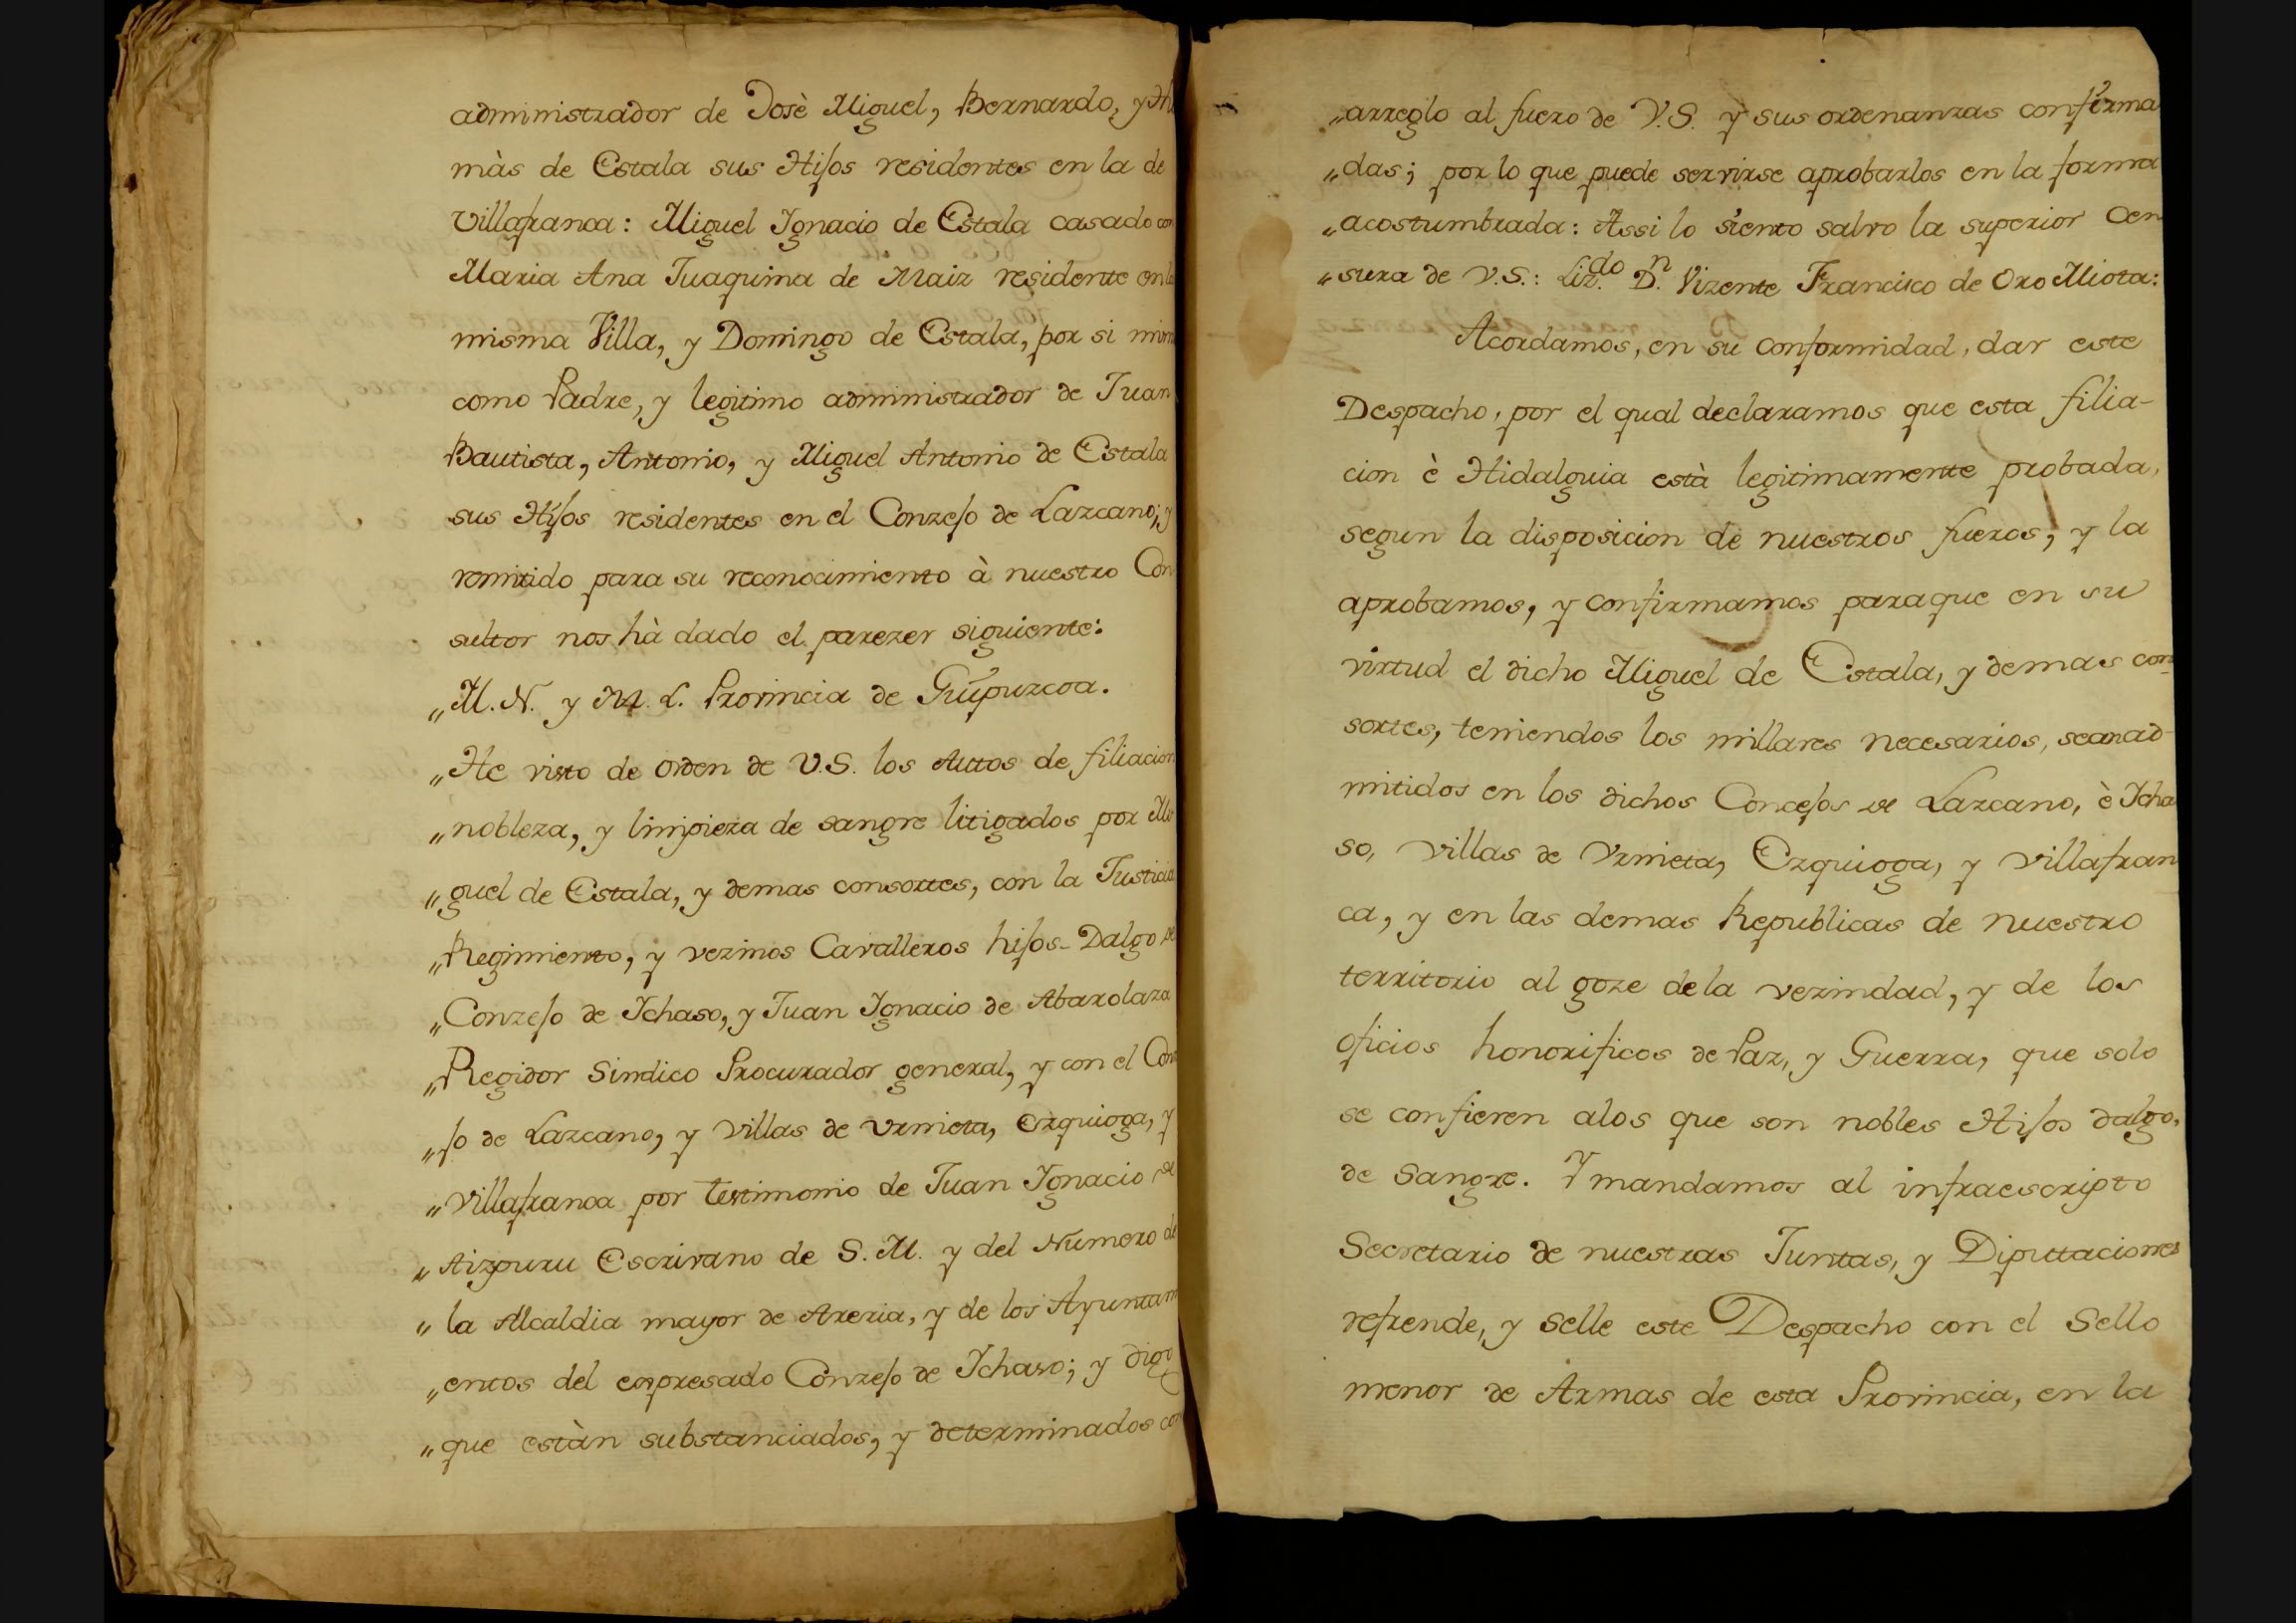 administrador de Josè Miguel, Bernardo, y
màs de Estala sus Hijos residentes en la de
Villafranca: Miguel Ignacio de Estala casado con
Maria Ana Juaquina de Maiz residente en la
misma Villa, y Domingo de Estala, por si mism
como Padre, y legitimo administrador de Juan
Bautista, Antonio, y Miguel Antonio de Estala
sus Hijos residentes en el Conzejo de Lazcano; y
remitido para su reconocimiento à nuestro Con
sultor nos hà dado el parezer siguiente:
„M. N. y M. L. Provincia de Guipuzcoa.
„He visto de orden de V.S. los Autos de filiacion
„nobleza, y limpieza de sangre litigados por Mi
„guel de Estala, y demas consortes, con la Justicia
„Regimiento, y vezinos Cavalleros hijos-Dalgo de
„Conzejo de Ichaso, y Juan Ignacio de Abarolaza
„Regidor Sindico Procurador general, y con el Con
„jo de Lazcano, y Villas de Urnieta, Ezquioga, y
„Villafranca por testimonio de Juan Ignacio de
„Aizpuru Escrivano de S. M. y del Numero de
„la Alcaldia mayor de Areria, y de los Ayuntam
„entos del expresado Conzejo de Ichaso; y digo
„que estàn substanciados, y determinados con
„arreglo al fuero de V.S. y sus ordenanzas confirma
„das; por lo que puede servirse aprobarlos en la forma
„acostumbrada: Assi lo siento salvo la superior Cen
„sura de V.S.: Liz.do D.n Vizente Francisco de Oro Miota:
Acordamos, en su conformidad, dar este
Despacho, por el qual declaramos que esta filia-
cion è Hidalguia està legitimamente probada,
segun la disposicion de nuestros fueros, y la
aprobamos, y confirmamos paraque en su
virtud el dicho Miguel de Estala, y demas con
sortes, teniendos los millares necesarios, sean ad-
mitidos en los dichos Concejos de Lazcano, è Icha
so, Villas de Urnieta, Ezquioga, y Villafran
ca, y en las demas Republicas de nuestro
territorio al goze dela vezindad, y de los
oficios honorificos de Paz, y Guerra, que solo
se confieren alos que son nobles Hijos dalgo,
de Sangre. Y mandamos al infraescripto
Secretario de nuestras Juntas, y Diputtaciones
refrende, y selle este Despacho con el Sello
menor de Armas de esta Provincia, en la